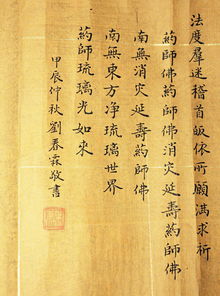 法度羣迷稽首皈依所願滿求祈
藥師佛藥師佛消災延壽藥師佛
南無消災延壽藥師佛
南無東方淨琉璃世界
藥師琉璃光如來
甲辰仲秋劉春霖敬書